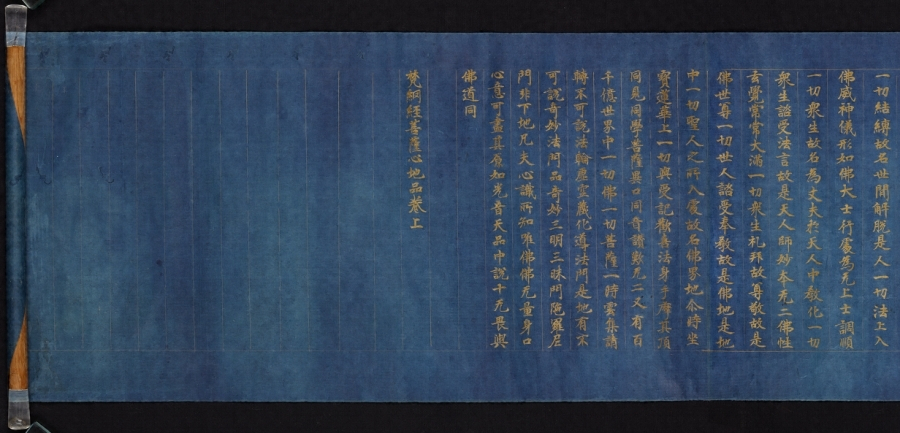 一切結縛故名世間解脫是人一切法上入
佛威神儀形如佛大士行處為无上士調順
一切衆生故名為丈夫於天人中教化一切
衆生諮受法言故是天人師妙本无二佛性
玄覺常常大滿一切衆生礼拜故尊敬故是
佛世尊一切世人諮受奉教故是佛地是地
中一切聖人之所入處故名佛界地尒時坐
寶蓮華上一切與受記歡喜法身手摩其頂
同見同學菩薩異口同音讃歎无二又有百
千億世界中一切佛一切菩薩一時雲集請
轉不可說法輪虛空藏化導法門是地有不
可說奇妙法門品奇妙三明三昧門陁羅尼
門非下地凡夫心識所知唯佛佛无量身口
心意可盡其原如光音天品中說十无畏與
佛道同
梵網經菩薩心地品卷上